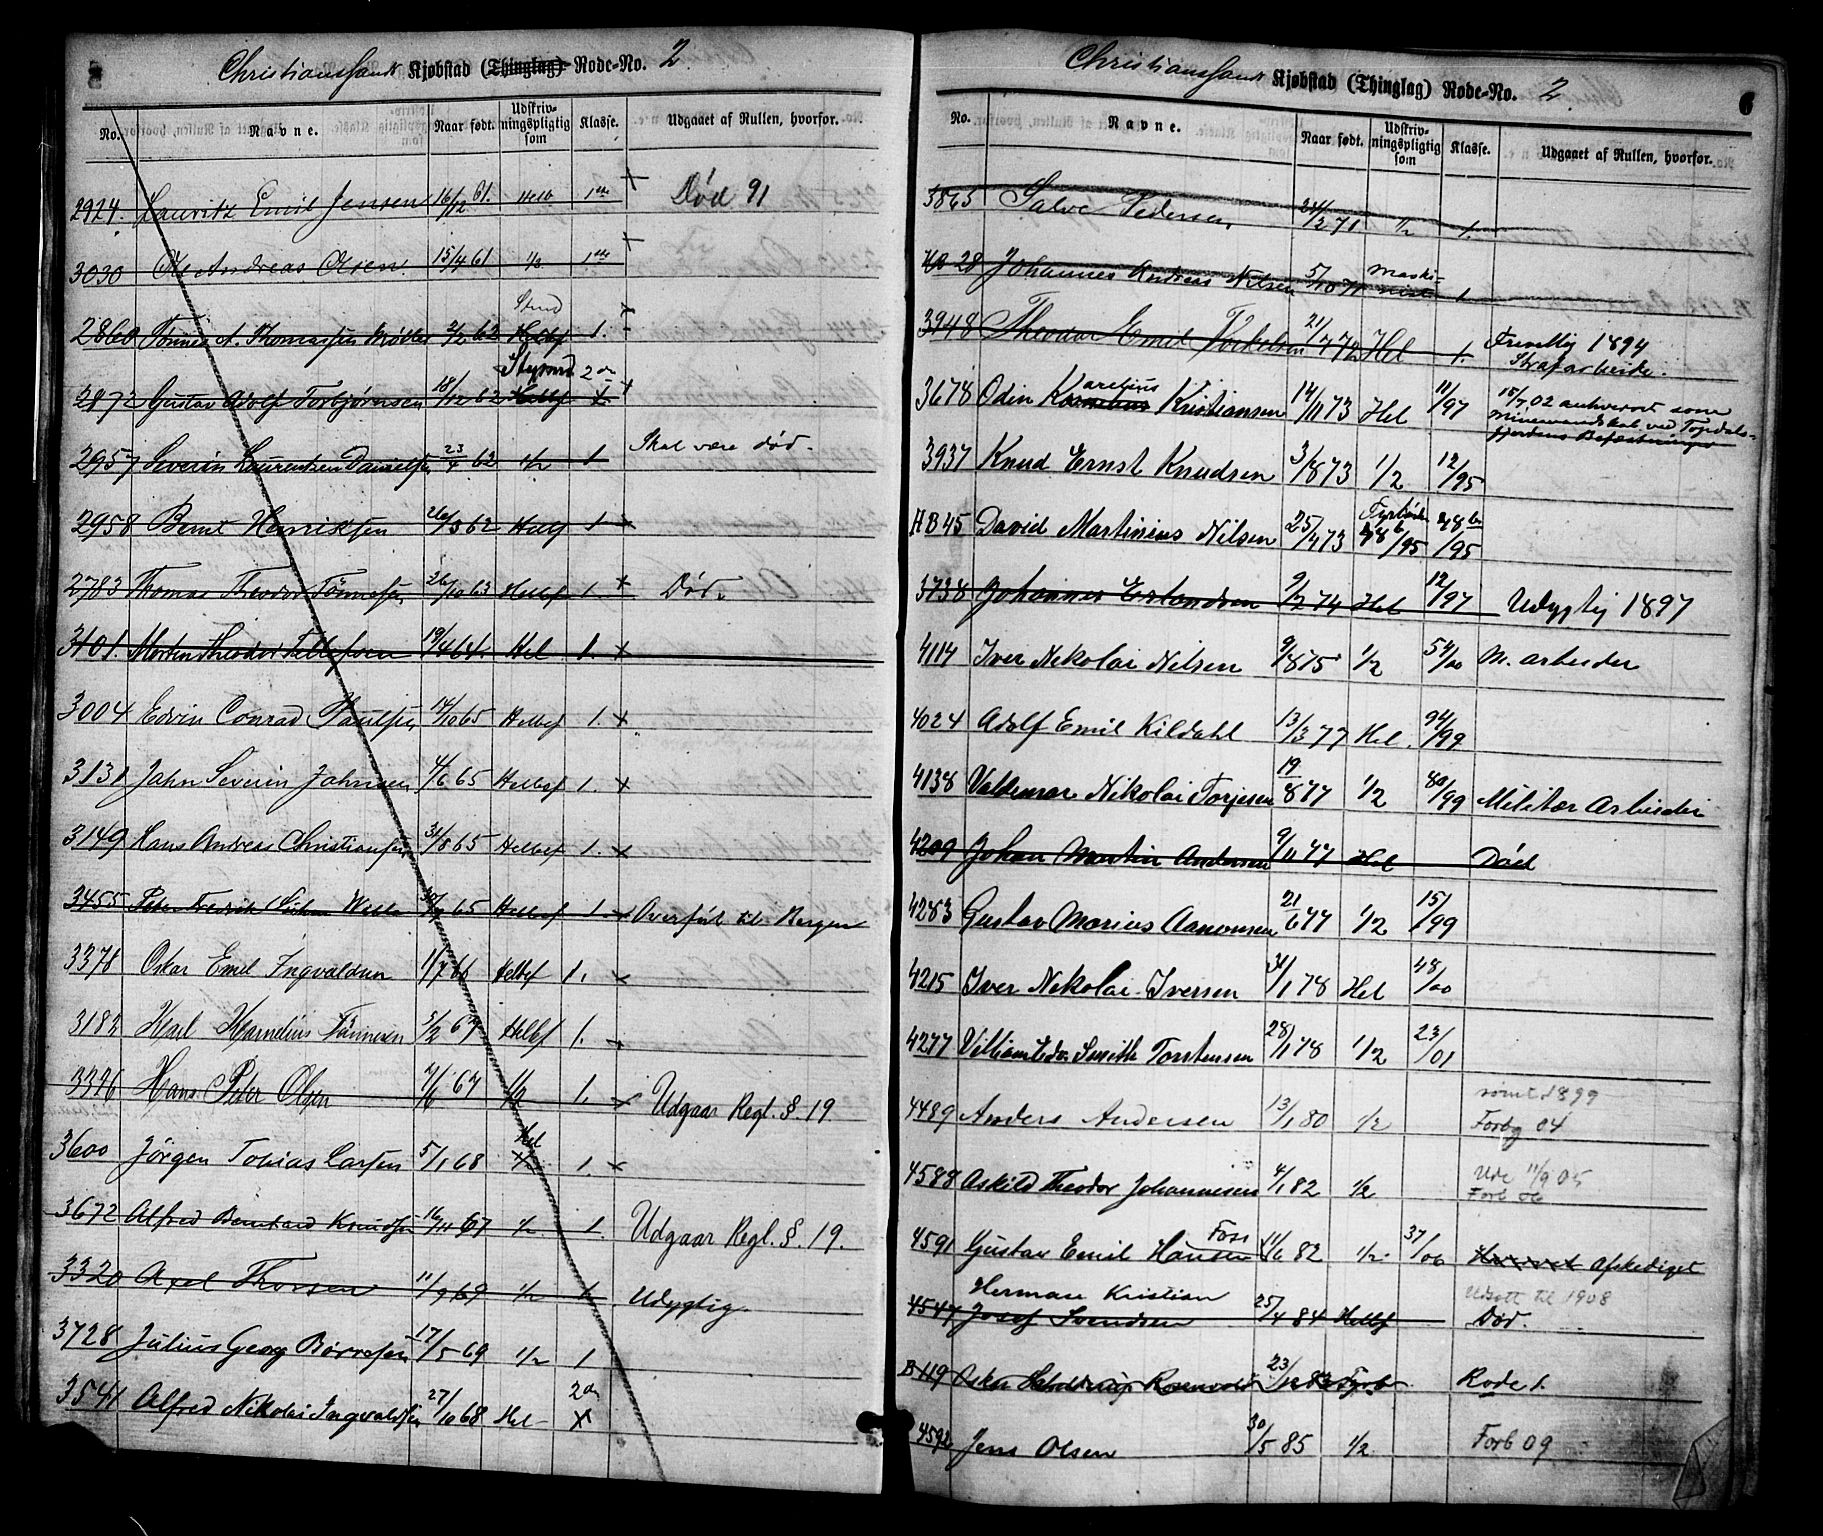 Christianssand Kjøbstad (Thinglag) Rode-No. 2
No. Navne. Naar født. Udskriv-ningspligtig som Klasse. Udgaaet af Rullen, hvorfor.
2924. Lauritz Emil Jensen 16/12 61. 1ste Død 91
3030 Ole Andreas Olsen 15/4 61 1/2 1ste
2860 Tønnes A. Thomassen 2/2 62 Helbef 1.
2872 Gustav Adolf Torbjørnsen 18/12 62 Styrmd 2den
2957 Severin Laurentsen Danielsen 23/4 62 1/2 1 Skal være død.
2958 Bernt Henriksen 26/3 62 1
2783 Thomas Theodor Tønnesen 26/10 63 Helbef 1. Død.
3101. Morten Theodor Tellefsen 19/4 64. Hel 1.
3004 Edvin Conrad Paulsen 17/10 65 Helbef 1.
3131 Jahn Severin Jahnsen 4/6 65 Helbef 1.
3149 Hans Andreas Christiansen 31/8 65 Helbef 1.
3455 Peter Fredrik 65 Helbef 1. Overført til Bergen
3378 Oskar Emil Ingvaldsen 11/7 66 Helbef 1.
3183 Karl Kornelius Tønnesen 3/2 67 Helbef 1.
3376 Hans Peter Olsen 7/6 67 1/2 1. Udgaar Regl. § 19
3600 Jörgen Tobias Carsen 5/1 68 Hel 1.
3672 Alfred Bernhard Knudsen 16/11 67 1/2 1. Udgaar Regl. §. 19.
3320 Axel Thorsen 11/9 69 1/2 1. Udygtig
3728 Julius Georg Börresen 17/5 69 1/2 1
3541 Alfred Nikolai Ingvaldsen 27/10 68 Hel 2den
Christianssand Kjøbstad (Thinglag) Rode-No. 2. 6
No. Navne. Naar født. Udskriv-ningspligtig som Klasse. Udgaaet af Rullen, hvorfor.
3865 Salve Pedersen, 24/2 71 1/2 1.
28 Johannes Andreas Nilsen 5/10 71 Maskinist 1
3948 Theodor Emil Torkelsen 21/7 72 Hel 1. Frivillig 1894
Strafarbeide.
3678 Odin Karelius Kristiansen 14/11 73 Hel 11/97 15/7 02 anhveret som
minemandskab ved Topdals-
fjordens Befæstninger
3937 Knud Ernst Knudsen 3/8 73 1/2 12/95
HB 45 David Martinius Nilsen 25/7 73 Fyrbød 48b/95
3738 Johannes Erlandsen 9/2 74 Hel 12/97 Udygtig 1897
4114 Iver Nikolai Nilsen 9/8 75 1/2 54/00 M. arbeider
4024 Adolf Emil Kildahl 13/3 77 Hel. 94/99
4138 Valdemar Nikolai Torjesen 19/8 77 1/2 80/99 Militær Arbeider
4209 Johan Martin Andersen 9/11 77 Hel Död
4283 Gustav Marius Aanonsen 21/6 77 1/2 15/99
4215 Iver Nikolai Iversen 31/1 78 Hel 48/00
4277 Villiam Edv. Smith Torstensen 28/11 78 1/2 23/01
4489 Anders Andersen 13/1 80 1/2 rømt 1899
Forbg 04
4588 Askild Theodor Johannesen 4/1 82 1/2 Ude 11/9 05
Forb 06
4591 Gustav Emil Hansen Foss 11/6 82 1/2 37/06 Afskediget
4547 Herman Kristian 25/4 84 Helbf Udsatt til 1908
Josef Svendsen Død.
B 119 Oskar Rosenvold 23/12 83 Fyrb Rode 1.
4592 Jens Olsen 30/5 85 1/2 Forb 09